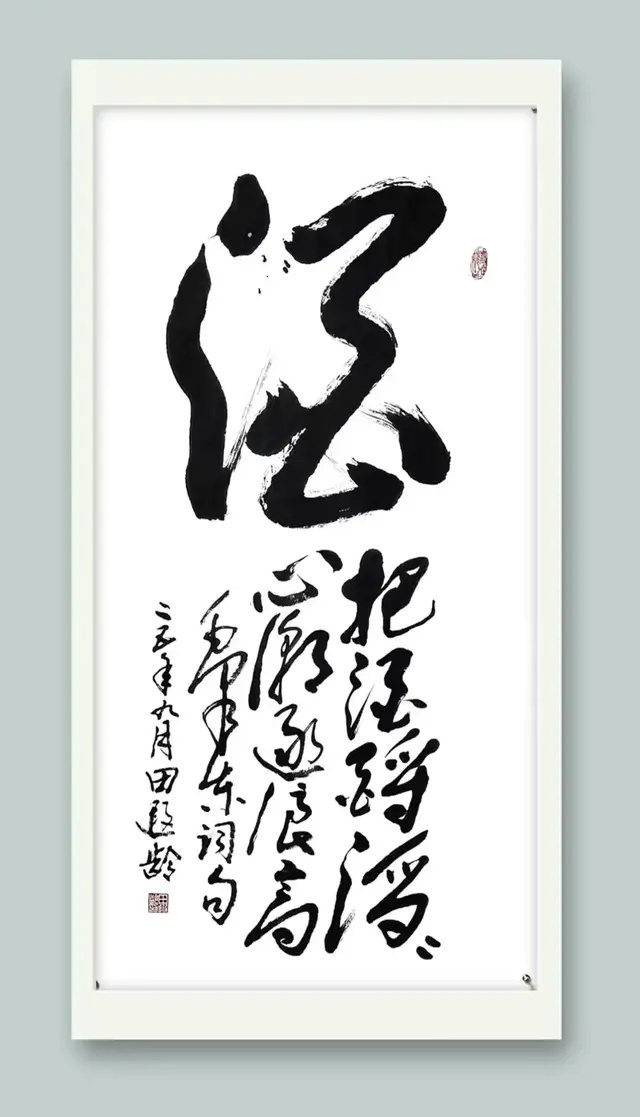 酒
把酒酹滔〻
心潮逐浪高
毛泽东词句
二五年九月田遐龄